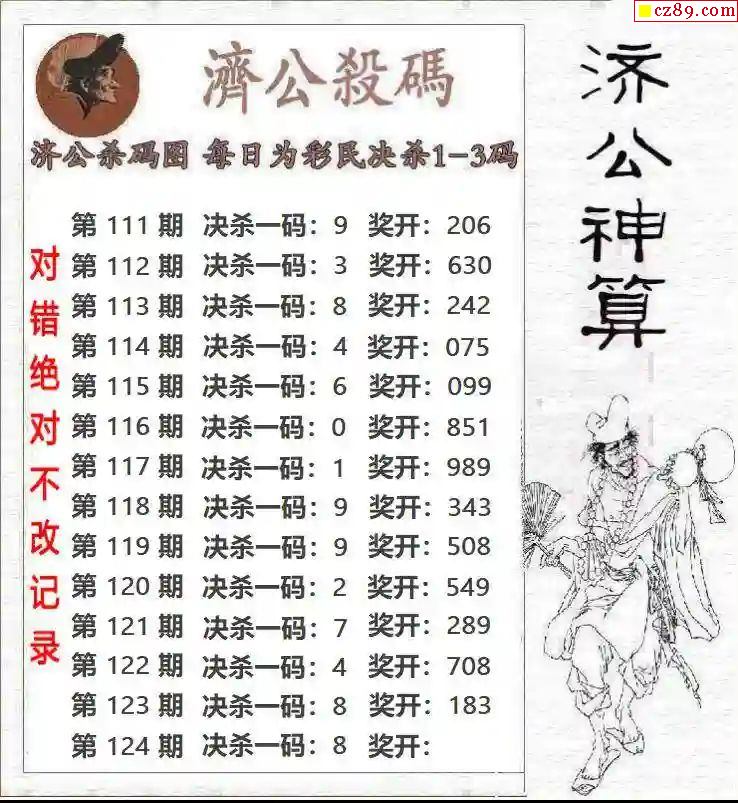 cz89.com
濟公殺碼
济公杀码图 每日为彩民决杀1-3码
第 111 期 决杀一码：9 奖开：206
第 112 期 决杀一码：3 奖开：630
第 113 期 决杀一码：8 奖开：242
第 114 期 决杀一码：4 奖开：075
第 115 期 决杀一码：6 奖开：099
第 116 期 决杀一码：0 奖开：851
第 117 期 决杀一码：1 奖开：989
第 118 期 决杀一码：9 奖开：343
第 119 期 决杀一码：9 奖开：508
第 120 期 决杀一码：2 奖开：549
第 121 期 决杀一码：7 奖开：289
第 122 期 决杀一码：4 奖开：708
第 123 期 决杀一码：8 奖开：183
第 124 期 决杀一码：8 奖开：
对错绝对不改记录
济公神算